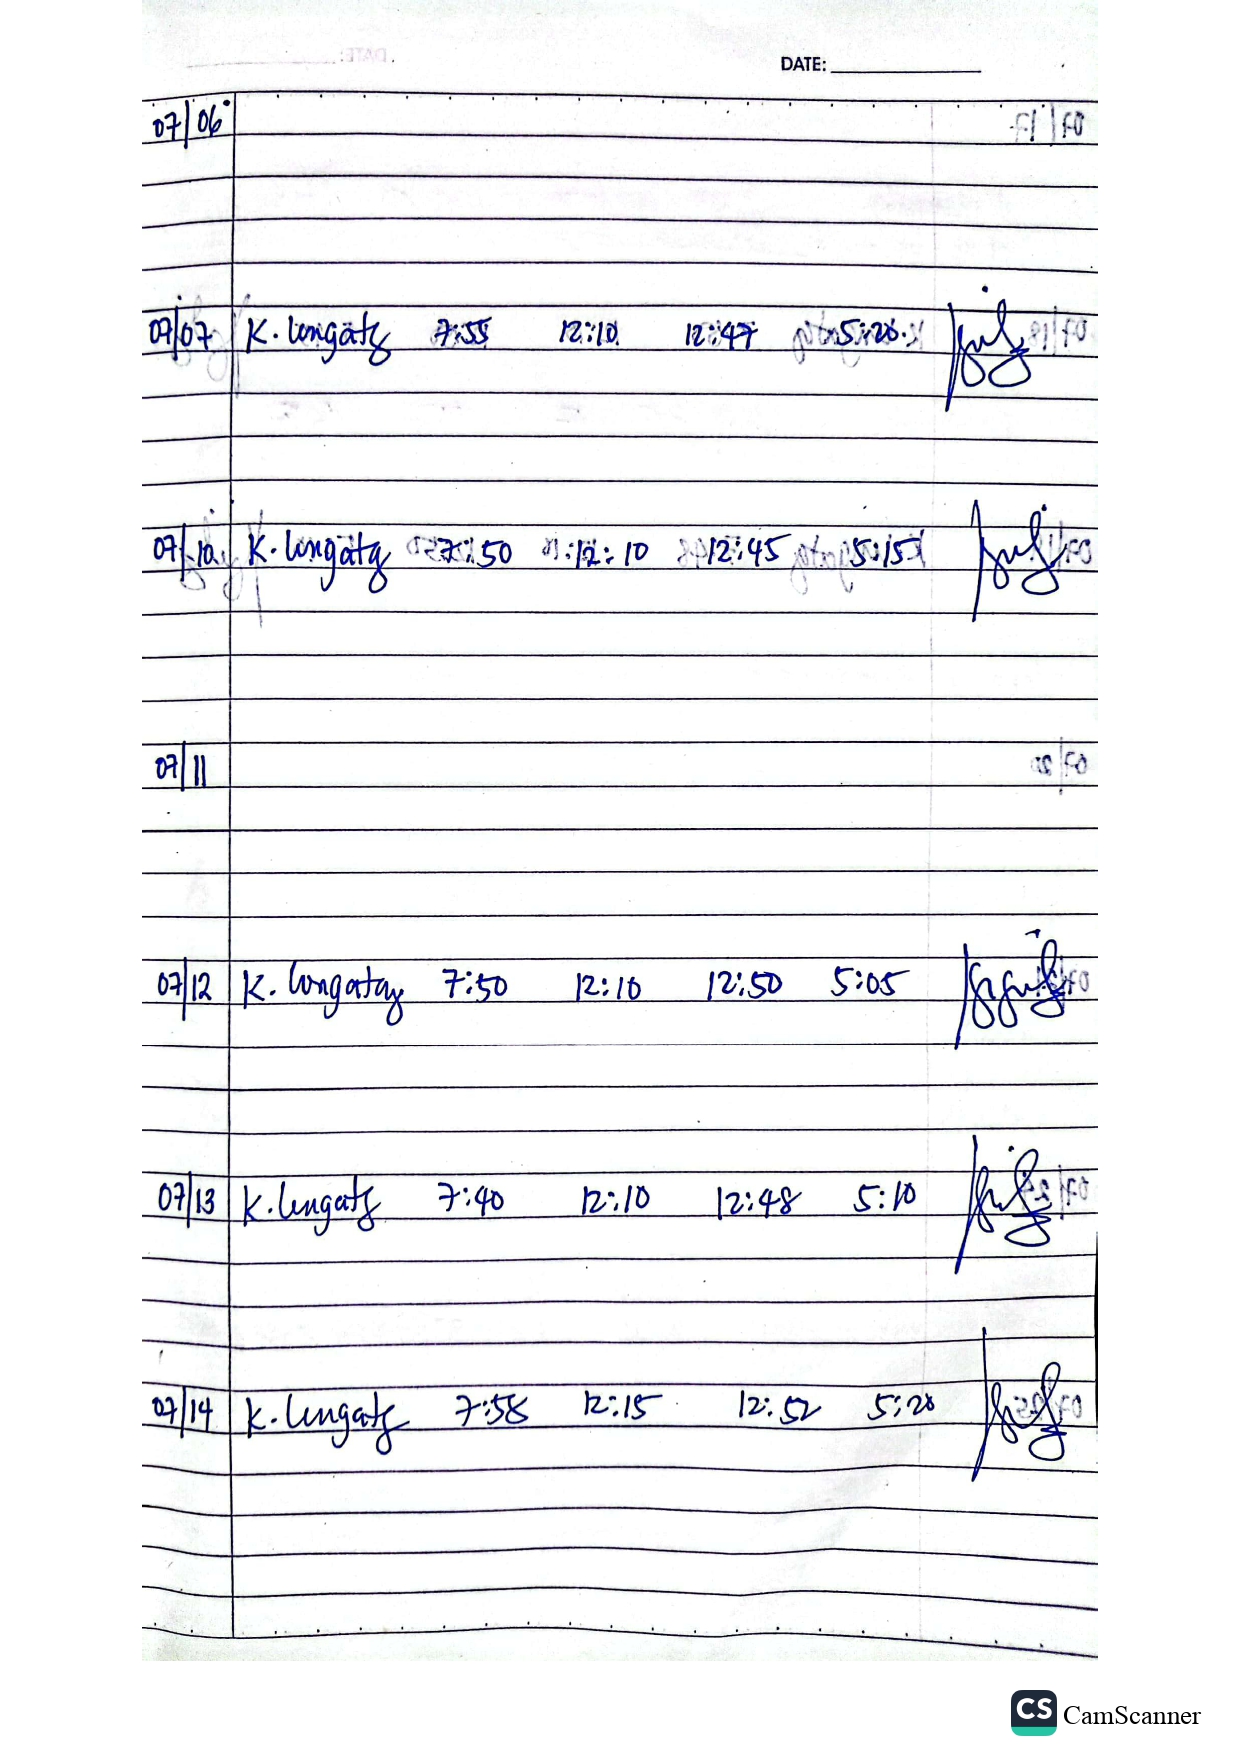 DATE:
07/06
07/07 K. Longatg 7:55 12:10 12:47 5:20
07/10 K. Longatg 7:50 12:10 12:45 5:15
07/11
07/12 K. Longatay 7:50 12:10 12:50 5:05
07/13 K. Longatg 7:40 12:10 12:48 5:10
07/14 K. Longatg 7:58 12:15 12:52 5:20
CS CamScanner